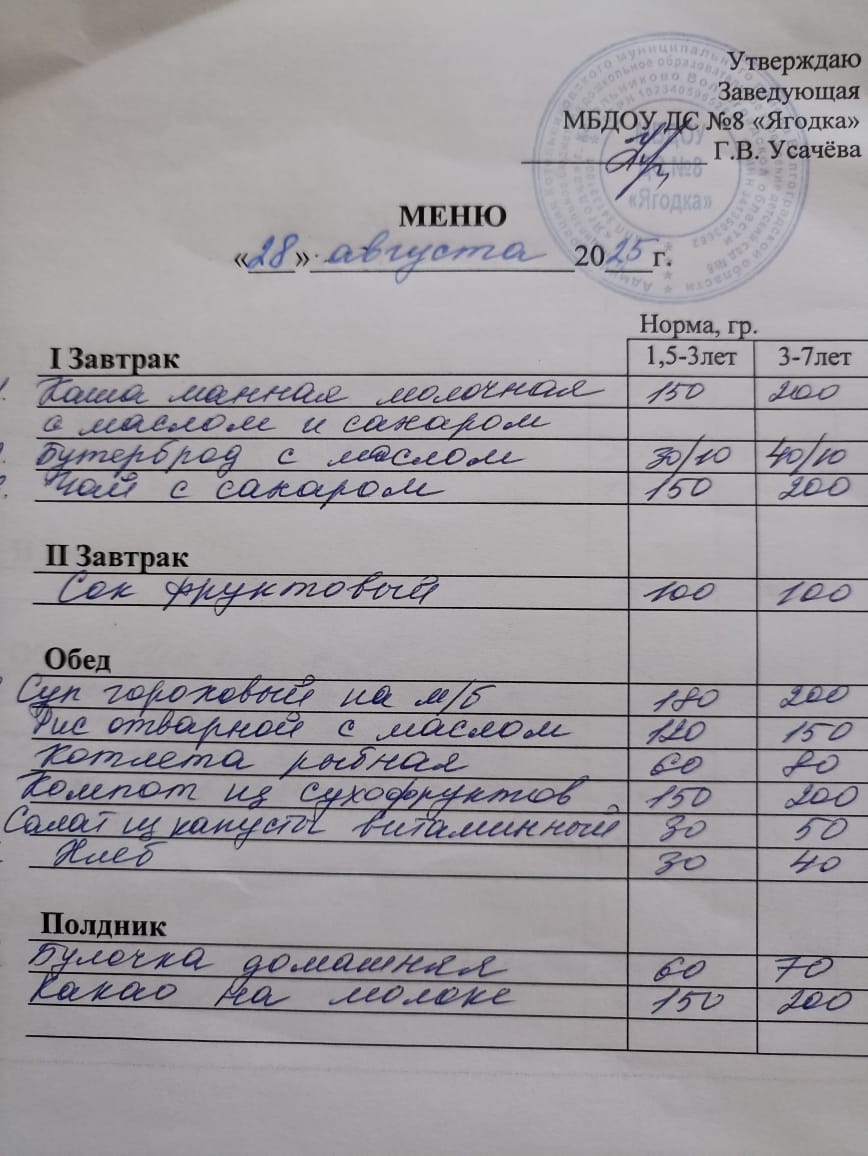 Утверждаю
Заведующая
МБДОУ ДС №8 «Ягодка»
Г.В. Усачёва
МБДОУ
ДС №8
«Ягодка»
МЕНЮ
«28» августа 2025 г.
Норма, гр.
I Завтрак 1,5-3лет 3-7лет
Каша манная молочная 150 200
с маслом и сахаром
Бутерброд с маслом 30/10 40/10
Чай с сахаром 150 200
II Завтрак
Сок фруктовый 100 100
Обед
Суп гороховый на м/б 180 200
Рис отварной с маслом 120 150
Котлета рыбная 60 80
Компот из сухофруктов 150 200
Салат из капусты витаминный 30 50
Хлеб 30 40
Полдник
Булочка домашняя 60 70
Какао на молоке 150 200